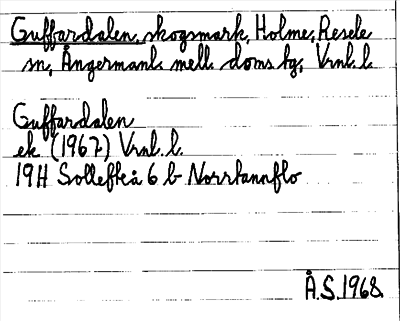 Guffardalen, skogsmark, Holme, Resele
sn, Ångermanl. mell. doms.tg, Vrnl. l.
Guffardalen
ek (1967) Vrnl. l.
19H Sollefteå 6 b Norrtannflo
Å.S. 1968.